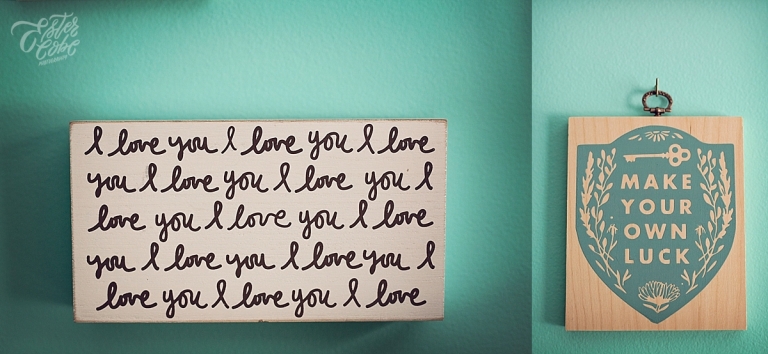 Ester
I love you I love you I love
you I love you I love you I
love you I love you I love
you I love you I love you I
love you I love you I love
MAKE
YOUR
OWN
LUCK